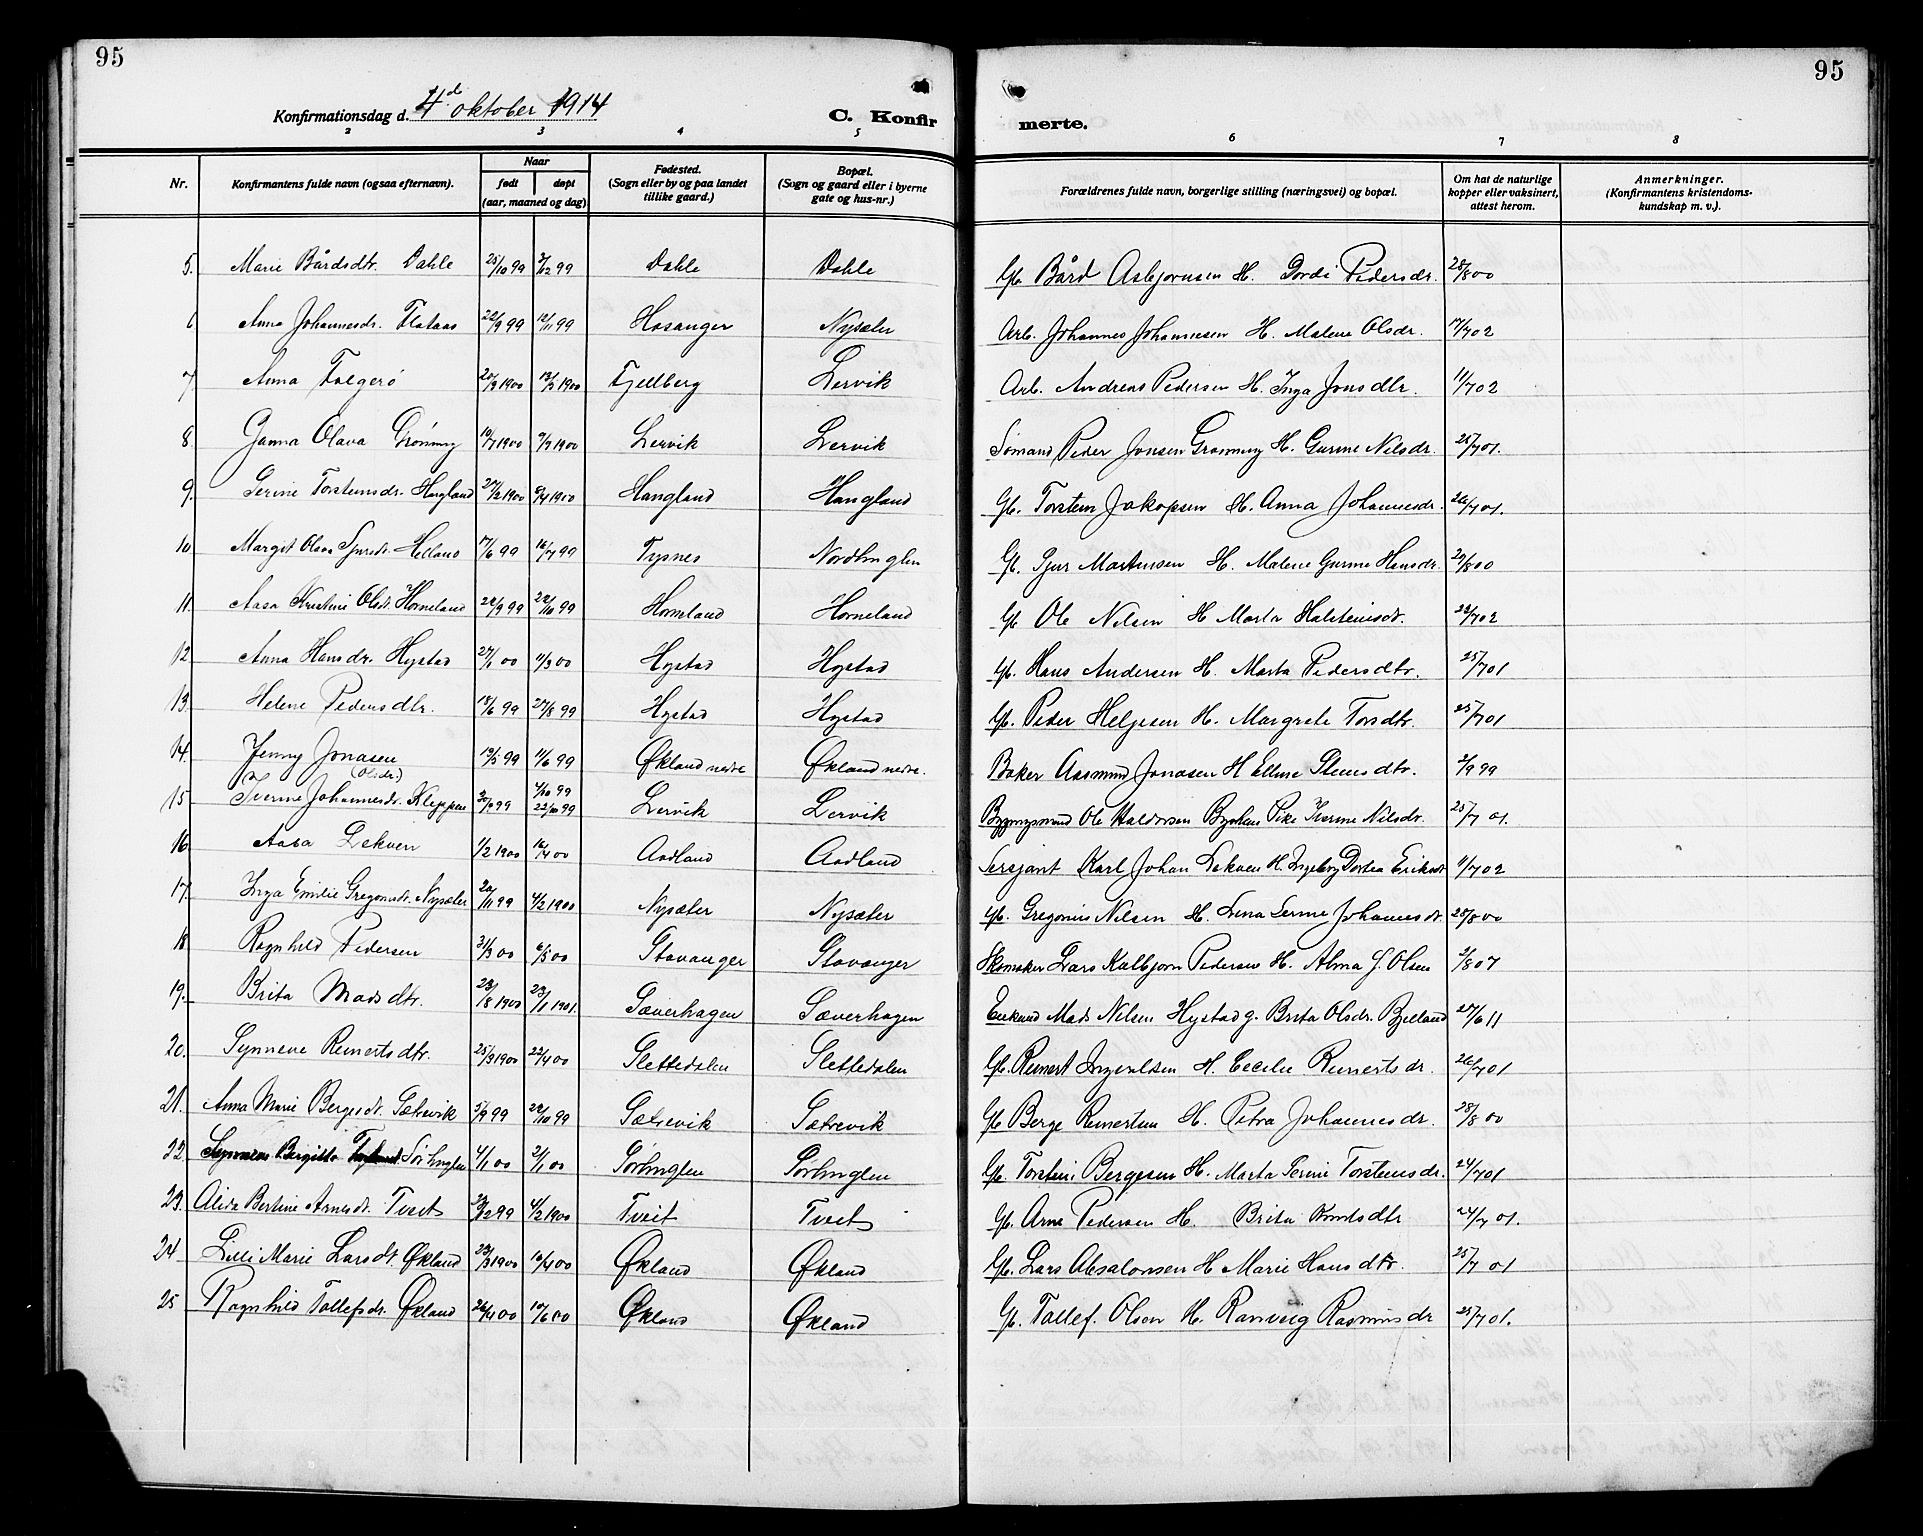 95
95
Konfirmationsdag d. 4d oktober 1914
C. Konfirmerte.
2 3 4 5 6 7 8
Nr. Konfirmantens fulde navn (ogsaa efternavn). Naar født døpt (aar, maaned og dag) Fødested. (Sogn eller by og paa landet tillike gaard.) Bopæl. (Sogn og gaard eller i byerne gate og hus-nr.) Forældrenes fulde navn, borgerlige stilling (næringsvei) og bopæl. Om hat de naturlige kopper eller vaksinert, attest herom. Anmerkninger. (Konfirmantens kristendomskundskap m. v.).
5. Marie Bårdsdtr. Dahle 25/10 99 3/12 99 Dahle Dahle Gb. Bård Asbjørnsen H. Gordi Pedersdr. 28/8 00
6 Anna Johannesdr. Flataas 22/9 99 12/11 99 Hosanger Nysæter Arb. Johannes Johannesen H. Malene Olsdr. 17/7 02
7 Anna Folgerö 20/3 1900 13/5 1900 Fjellberg Lervik Arb. Andreas Pedersen H. Inga Jonsdtr. 11/7 02
8 Ganna Olava Grönning 10/7 1900 9/9 1900 Lervik Lervik Sömand Peder Jonsen Grönning H. Gurine Nilsdr. 25/7 01.
9. Serine Torsteinsdr. Haugland 27/2 1900 8/4 1900 Haugland Haugland Gb. Torstein Jakopsen H. Anna Johannesdr. 26/7 01.
10. Margit Olava Sjursdr. Helland 17/6 99 16/7 99 Tysnes Nordhuglen Gb. Sjur Martinsen H. Malene Gurine Hansdr. 29/8 00
11. Aasa Kristine Olsdr. Horneland 22/9 99 22/10 99 Horneland Horneland Gb. Ole Nilsen H. Marta Halsteinsdr. 23/7 02
12 Anna Hansdr. Hystad 27/1 00 11/3 00 Hystad Hystad Gb. Hans Andersen H. Marta Pedersdtr. 25/7 01
13. Helene Pedersdtr. 18/6 99 27/8 99 Hystad Hystad Gb. Peder Helgesen H. Margrete Torsdtr. 25/7 01
14. Jenny Jonasen 19/5 99 11/6 99 Økland nedre Økland nedre. Baker Aasmund Jonasen H Elline Steensdtr. 2/9 99
15 Iverine Johannesdr. (Olsdr.) Kleppen 30/9 99 4/10 99 22/10 99 Lervik Lervik Bygningsmand Ole Haldorsen Bjelland Pike Iverine Nilsdr. 25/7 01.
16. Aasa Lekven 1/2 1900 16/4 00 Aadland Aadland Sersjant Karl Johan Lekven H. Ingeborg Dortea Eriksdr 11/7 02
17. Inga Emilie Gregoriusdr. Nysæter 20/11 99 4/2 1900 Nysæter Nysæter Gb. Gregorius Nilsen H. Lina Serine Johannesdr. 28/8 00
18 Ragnhild Pedersen 31/3 00 6/5 00 Stavanger Stavanger Skomaker Lars Kolbjorn Pedersen H. Alma G. Olsen 2/8 07
19. Brita Madsdtr. 28/8 1900 23/1 1901. Sæverhagen Sæverhagen Enkemd Mads Nilsen Hystad g. Brita Olsdr. Bjelland 27/6 11
20. Synneve Reinertsdtr. 25/3 1900 22/4 00 Slettedalen Slettedalen Gb. Reinert Ingvaldsen H. Cecilie Reinertsdr. 26/7 01
21. Anna Marie Bergesdr. Sætrevik 5/9 99 22/10 99 Sætrevik Sætrevik Gb Berge Reinertsen H. Petra Johannesdr. 28/8 00
22. Synneva Bergitte Sörhuglen 4/1 00 21/1 00 Sörhuglen Sörhuglen Gb. Torstein Bergesen H. Marta Serine Torsteinsdr. 24/7 01
23. Alida Bertine Arnesdr. Tveit 29/12 99 4/2 1900 Tveit Tveit Gb. Arne Pedersen H. Brita Knutsdtr 24/7 01.
24 Lilli Marie Larsdt. Økland 23/3 1900 16/4 00 Økland Økland Gb. Lars Absalonsen H Marie Hansdtr. 25/7 01
25 Ragnhild Tollefsdr. Økland 26/4 00 10/6 00 Økland Økland Gb. Tollef. Olsen H. Ranveig Rasmusdr 25/7 01.